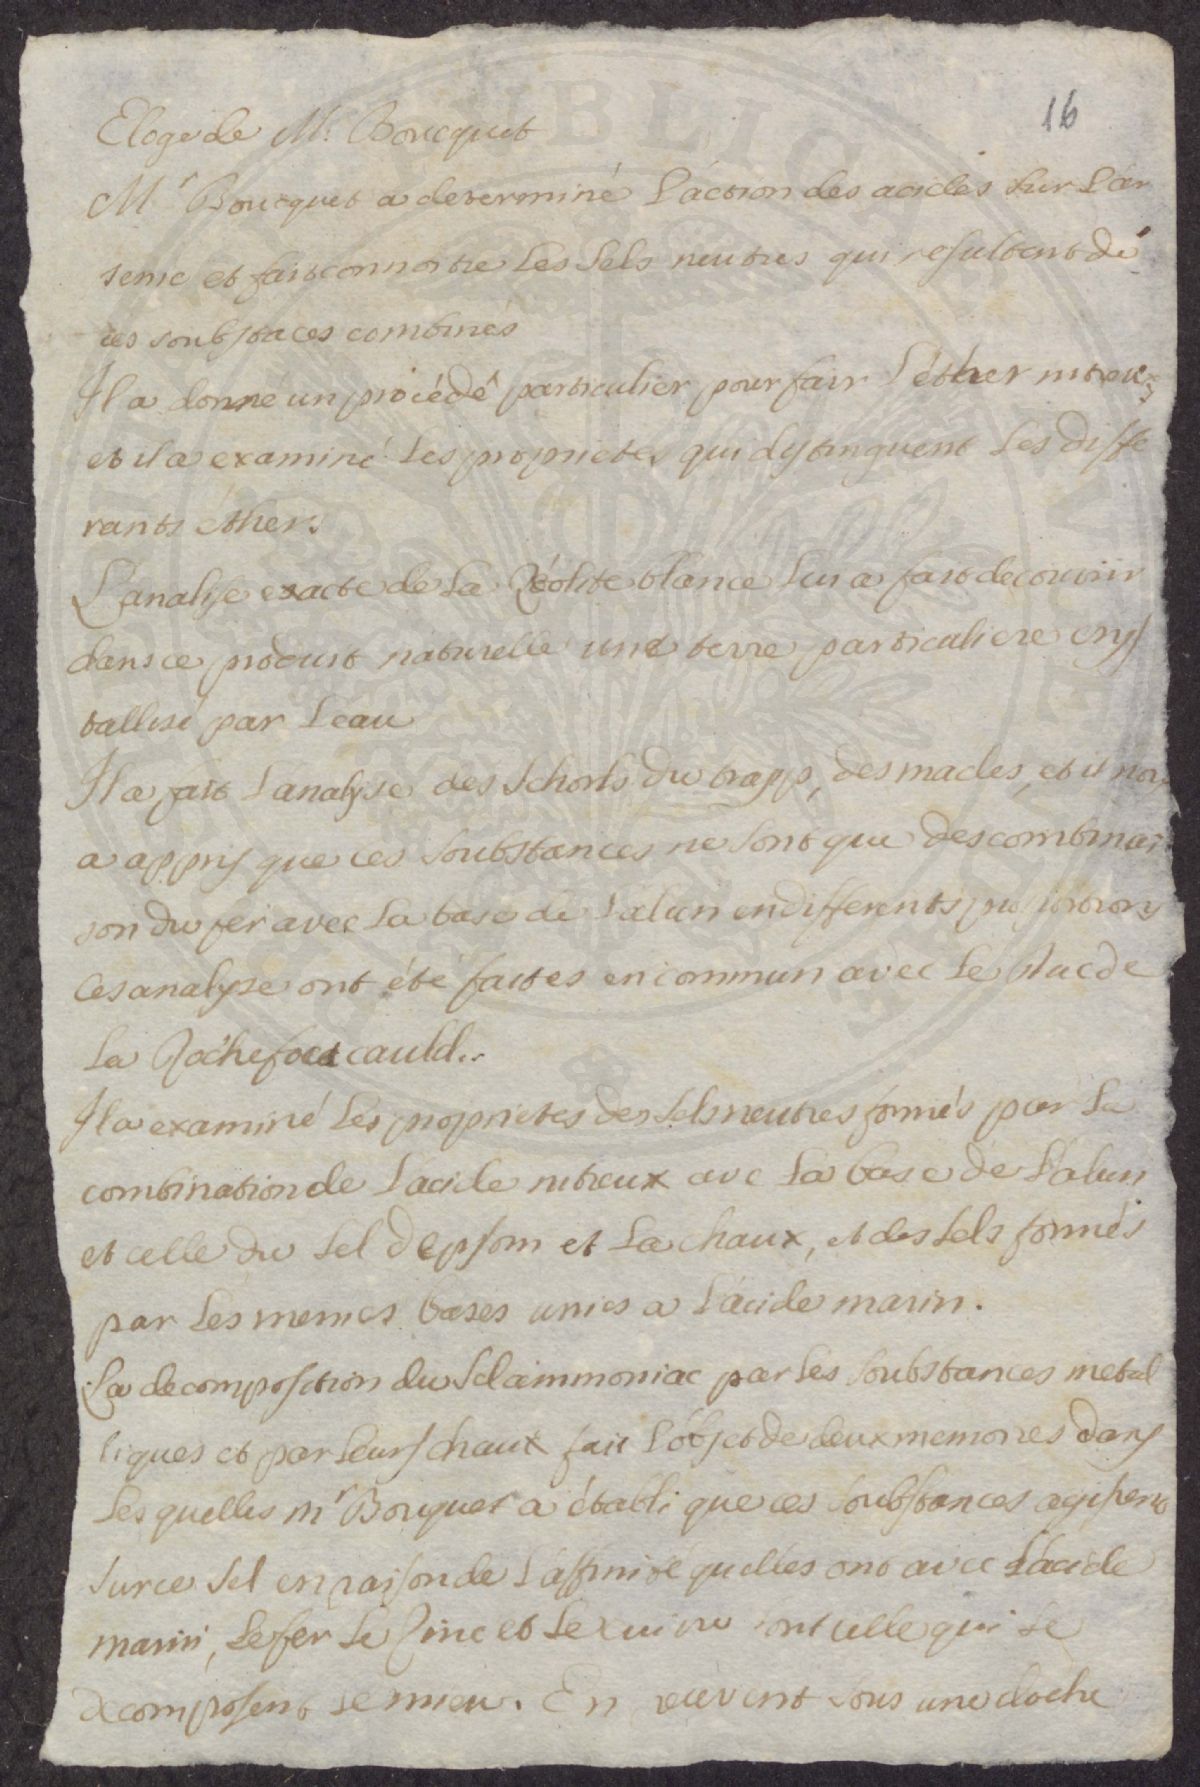 16
Eloge de Mr.Boucquet
Mr Boucquet a determiné L'action des acides sur L'ar
senic et fait connoitre Les Sels neutres qui resultent de
ces soubstaces combinés
Il a donné un procédé particulier pour fair L'éther nitreux
et il a examiné Les proprietes qui distinguent Les diffe
rants éthers
L'analise exacte de La Zéolite blance Lui a fait decouvrir
dans ce produit naturelle une terre particuliere crys
tallisé par Leau
Il a fait Lanalyse des Schorls du trapp, des macles, et il nous
a appris que ces soubstances ne sont que des combinai
son du fer avec La base de L'alun en differents proportions
Ces analyse ont été faites en commun avec Le Duc de
La Rochefoucauld..
Il a examiné Les proprietes des sels neutres formés par La
combination de L'acide nitreux ave La base de L'alun
et celle du Sel Depsom et La chaux, et des sels formés
par Les memes bases unies a L'acide marin.
La decomposition du Sel ammoniac par Les Soubstances metal
liques et par Leurs chaux fait L'objet de deux memoires dans
Les quelles mr Bouquet a établi que ces Soubstances agissent
sur ce Sel en raison de L'affinité quelles ont avec L'acide
marin, Le fer Le Zinc et Le cuivre sont celle qui se
decomposent le mieu. En sous une cloche
PUBLICA